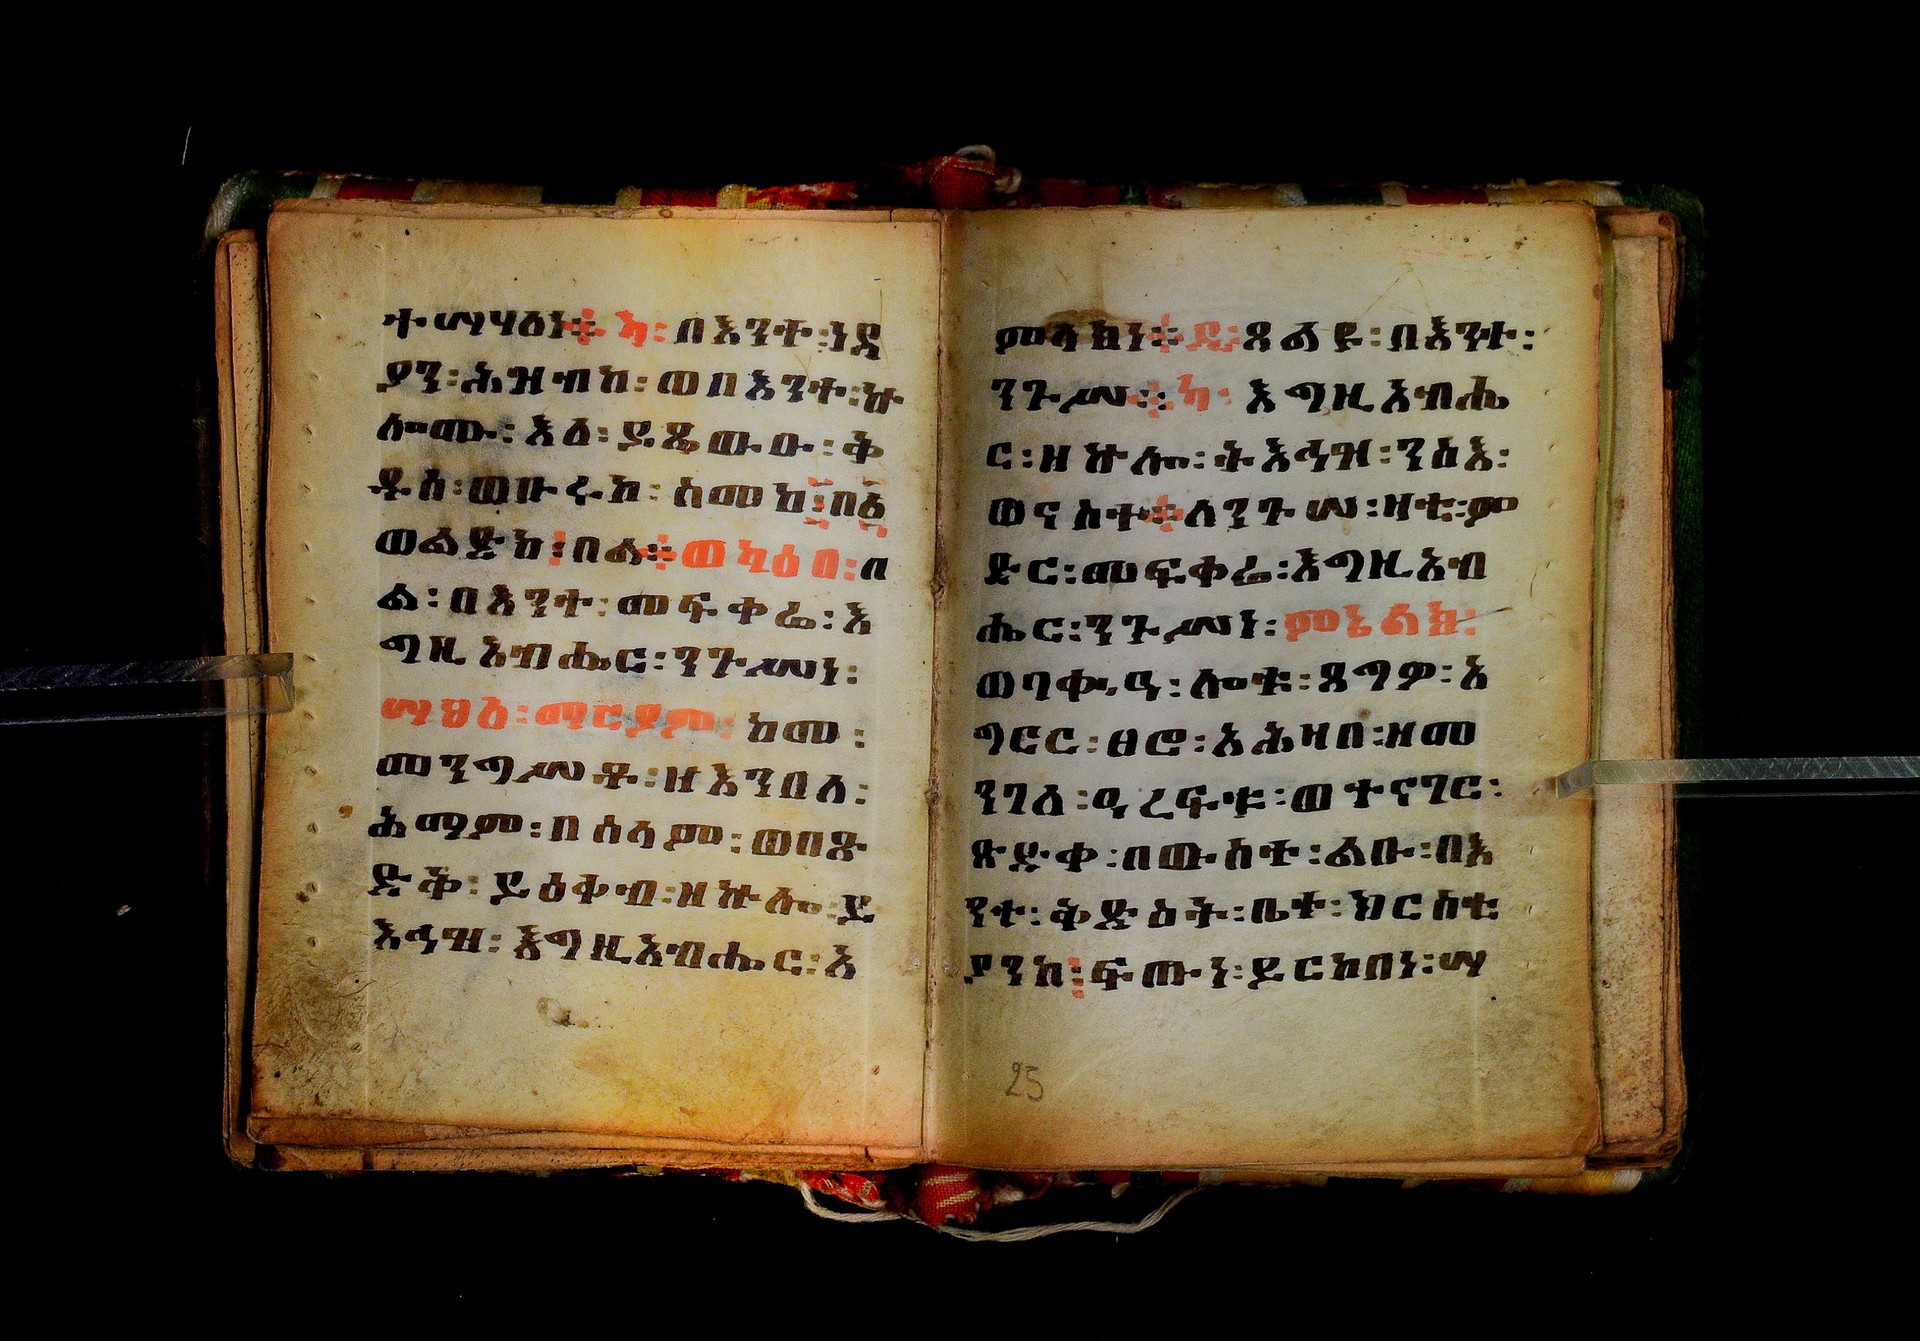 ተሣሃልነ፨ ካ፡ በእንተ፡ነዳ
ያን፡ሕዝብከ፡ ወበእንተ፡ኵ
ሎሙ፡ እለ፡ ይጼውዑ፡ ቅ
ዱስ፡ወቡሩከ፡ ስመከ፤በል
ወልድከ፤በል፨ ወካዕበ፡ በ
ል፡ በእንተ፡ መፍቀሬ፡ እ
ግዚአብሔር፡ንጉሥነ፡
ሣህለ፡ማርያም፡ ከመ፡
መንግሥቶ፡ ዘእንበለ፡
ሕማም፡በሰላም፡ ወበጽ
ድቅ፡ ይዕቀብ፡ዘኵሎ፡ይ
እኅዝ፡ እግዚአብሔር፡ አ
ምላክነ፨ ዲ፡ ጸልዩ፡ በእንተ፡
ንጉሥ፨ ካ፡ እግዚአብሔ
ር፡ዘኵሎ፡ትእኅዝ፡ንስእ፡
ወናስተ፨ለንጉሠ፡ዛቲ፡ም
ድር፡መፍቀሬ፡እግዚአብ
ሔር፡ንጉሥነ፡ ምኒልክ፡
ወባቍዒ፡ ሎቱ፡ ጸግዎ፡ እ
ግርር፡ ፀሮ፡ አሕዛበ፡ዘመ
ንገለ፡ ዒረፍቱ፡ ወተናገር፡
ጽድቀ፡በውስተ፡ ልቡ፡በእ
ንተ፡ ቅድስት፡ ቤተ፡ ክርስቲ
ያንከ፤ፍጡነ፡ይርከበነ፡ሣ